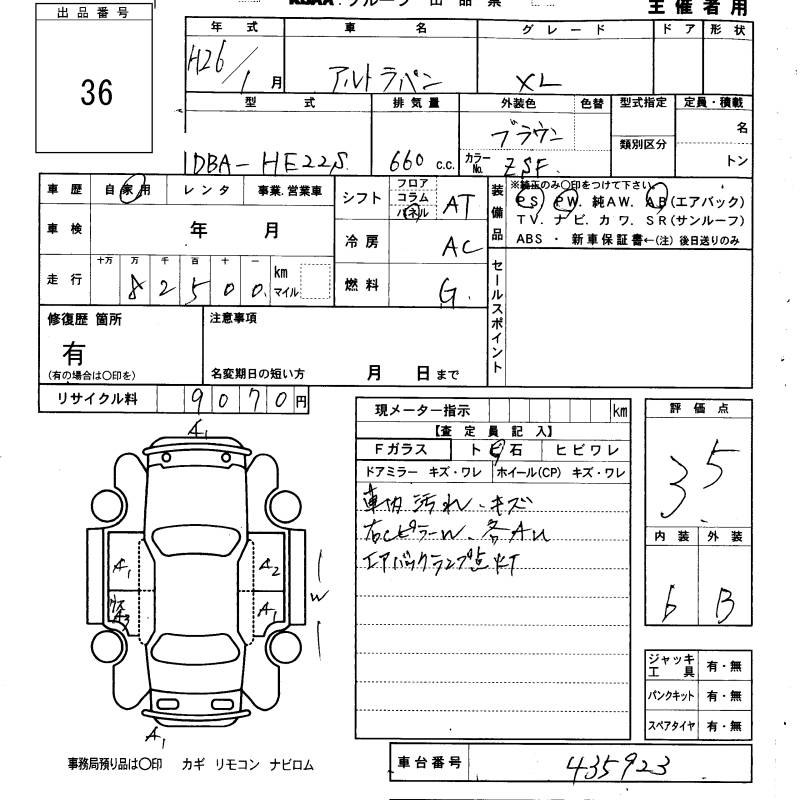 出品番号
36
主催者用
年式 車名 グレード ドア 形状
H26/1月 アルトラパン XL
型式 排気量 外装色 色替 型式指定 定員・積載
類別区分
DBA-HE22S 660 c.c. ブラウン カラーNo. ZSF 名
トン
車歴 自家用 レンタ 事業.営業車
車検 年 月
走行 十万 万 千 百 十 一
8 2 5 0 0 km マイル
シフト フロア コラム パネル AT
冷房 AC
燃料 G.
装備品
※純正のみ〇印をつけて下さい。
PS PW. 純AW. AB(エアバック)
TV. ナビ. カワ. SR(サンルーフ)
ABS ・ 新車保証書←(注) 後日送りのみ
セールスポイント
修復歴 箇所 注意事項
有
(有の場合は〇印を) 名変期日の短い方 月 日まで
リサイクル料 9 0 7 0 円
現メーター指示 km
【査定員記入】
Fガラス トビ石 ヒビワレ
ドアミラー キズ・ワレ ホイール(CP) キズ・ワレ
車内汚れ、キズ
右CピラーW、各AU
エアバックランプ点灯
評価点
3.5
内装 外装
6 B
A1
A1 A2
A3 A1
W
A1
ジャッキ工具 有・無
パンクキット 有・無
スペアタイヤ 有・無
事務局預り品は〇印 カギ リモコン ナビロム
車台番号 435923